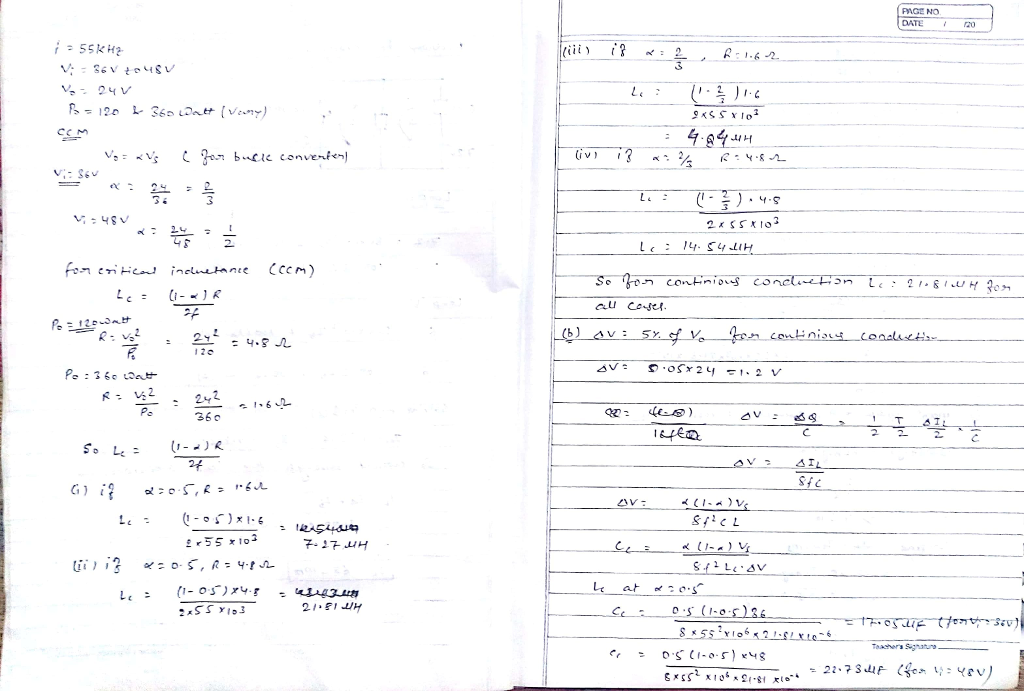 i = 55KHz
Vi = 36V to 48V
Vo = 24V
Po = 120 & 360 Watt (Vary)
CCM
Vo = αVs ( for buck converter)
Vi = 36V
α = 24/36 = 2/3
Vi = 48V
α = 24/48 = 1/2
for critical inductance (CCM)
Lc = (1-α)R / 2f
Po = 120watt
R = Vo²/Po = 24²/120 = 4.8 Ω
Po = 360 Watt
R = Vo²/Po = 24²/360 = 1.6Ω
So Lc = (1-α)R / 2f
(i) if α = 0.5, R = 1.6Ω
Lc = (1-0.5)×1.6 / 2×55×10³ = 7.27 μH
(ii) if α = 0.5, R = 4.8Ω
Lc = (1-0.5)×4.8 / 2×55×10³ = 21.81 μH
PAGE NO.
DATE / /20
(iii) if α = 2/3, R = 1.6Ω
Lc = (1-2/3)1.6 / 2×55×10³
= 4.84 μH
(iv) if α = 2/3 R = 4.8Ω
Lc = (1-2/3).4.8 / 2×55×10³
Lc = 14.54 μH
So for continious conduction Lc = 21.81 μH for
all cases.
(b) ΔV = 5% of Vo for continious conduction
ΔV = 0.05×24 = 1.2 V
ΔV = ΔQ/C = 1/2 T/2 ΔIL/2 . 1/C
ΔV = ΔIL / 8fC
ΔV = α(1-α)Vs / 8f²CL
Cc = α(1-α)Vs / 8f²Lc.ΔV
Lc at α = 0.5
Cc = 0.5(1-0.5)36 / 8×55²×10⁶×21.81×10⁻⁶ = 17.05μF (for Vi = 36V)
Teacher's Signature
Cc = 0.5(1-0.5)×48 / 8×55²×10⁶×21.81×10⁻⁶ = 22.73μF (for Vi = 48V)